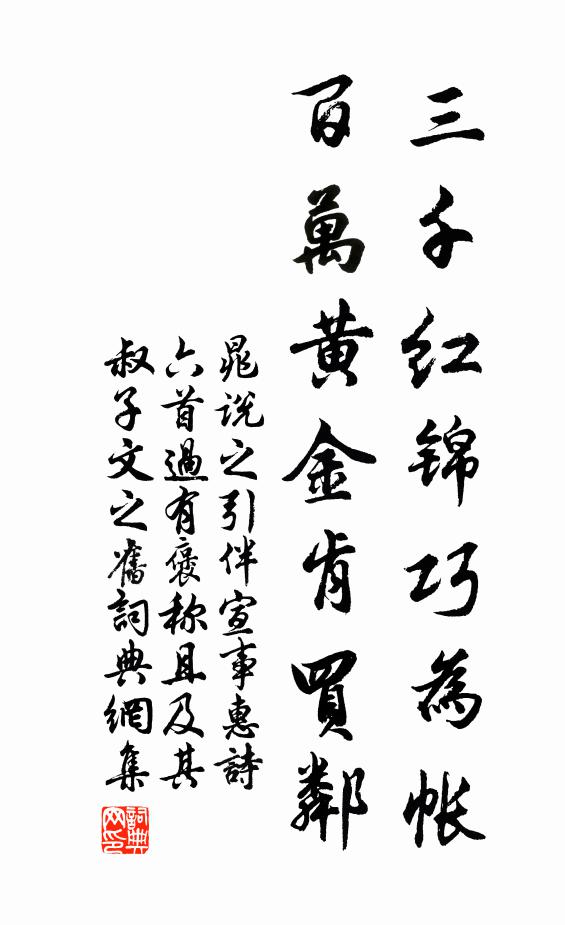 三千红锦巧為帐
百萬黄金肯買鄰
晁说之引伴宣事惠詩
六首過有褒称且及其
叔子文之舊詞典網集
詞典网印